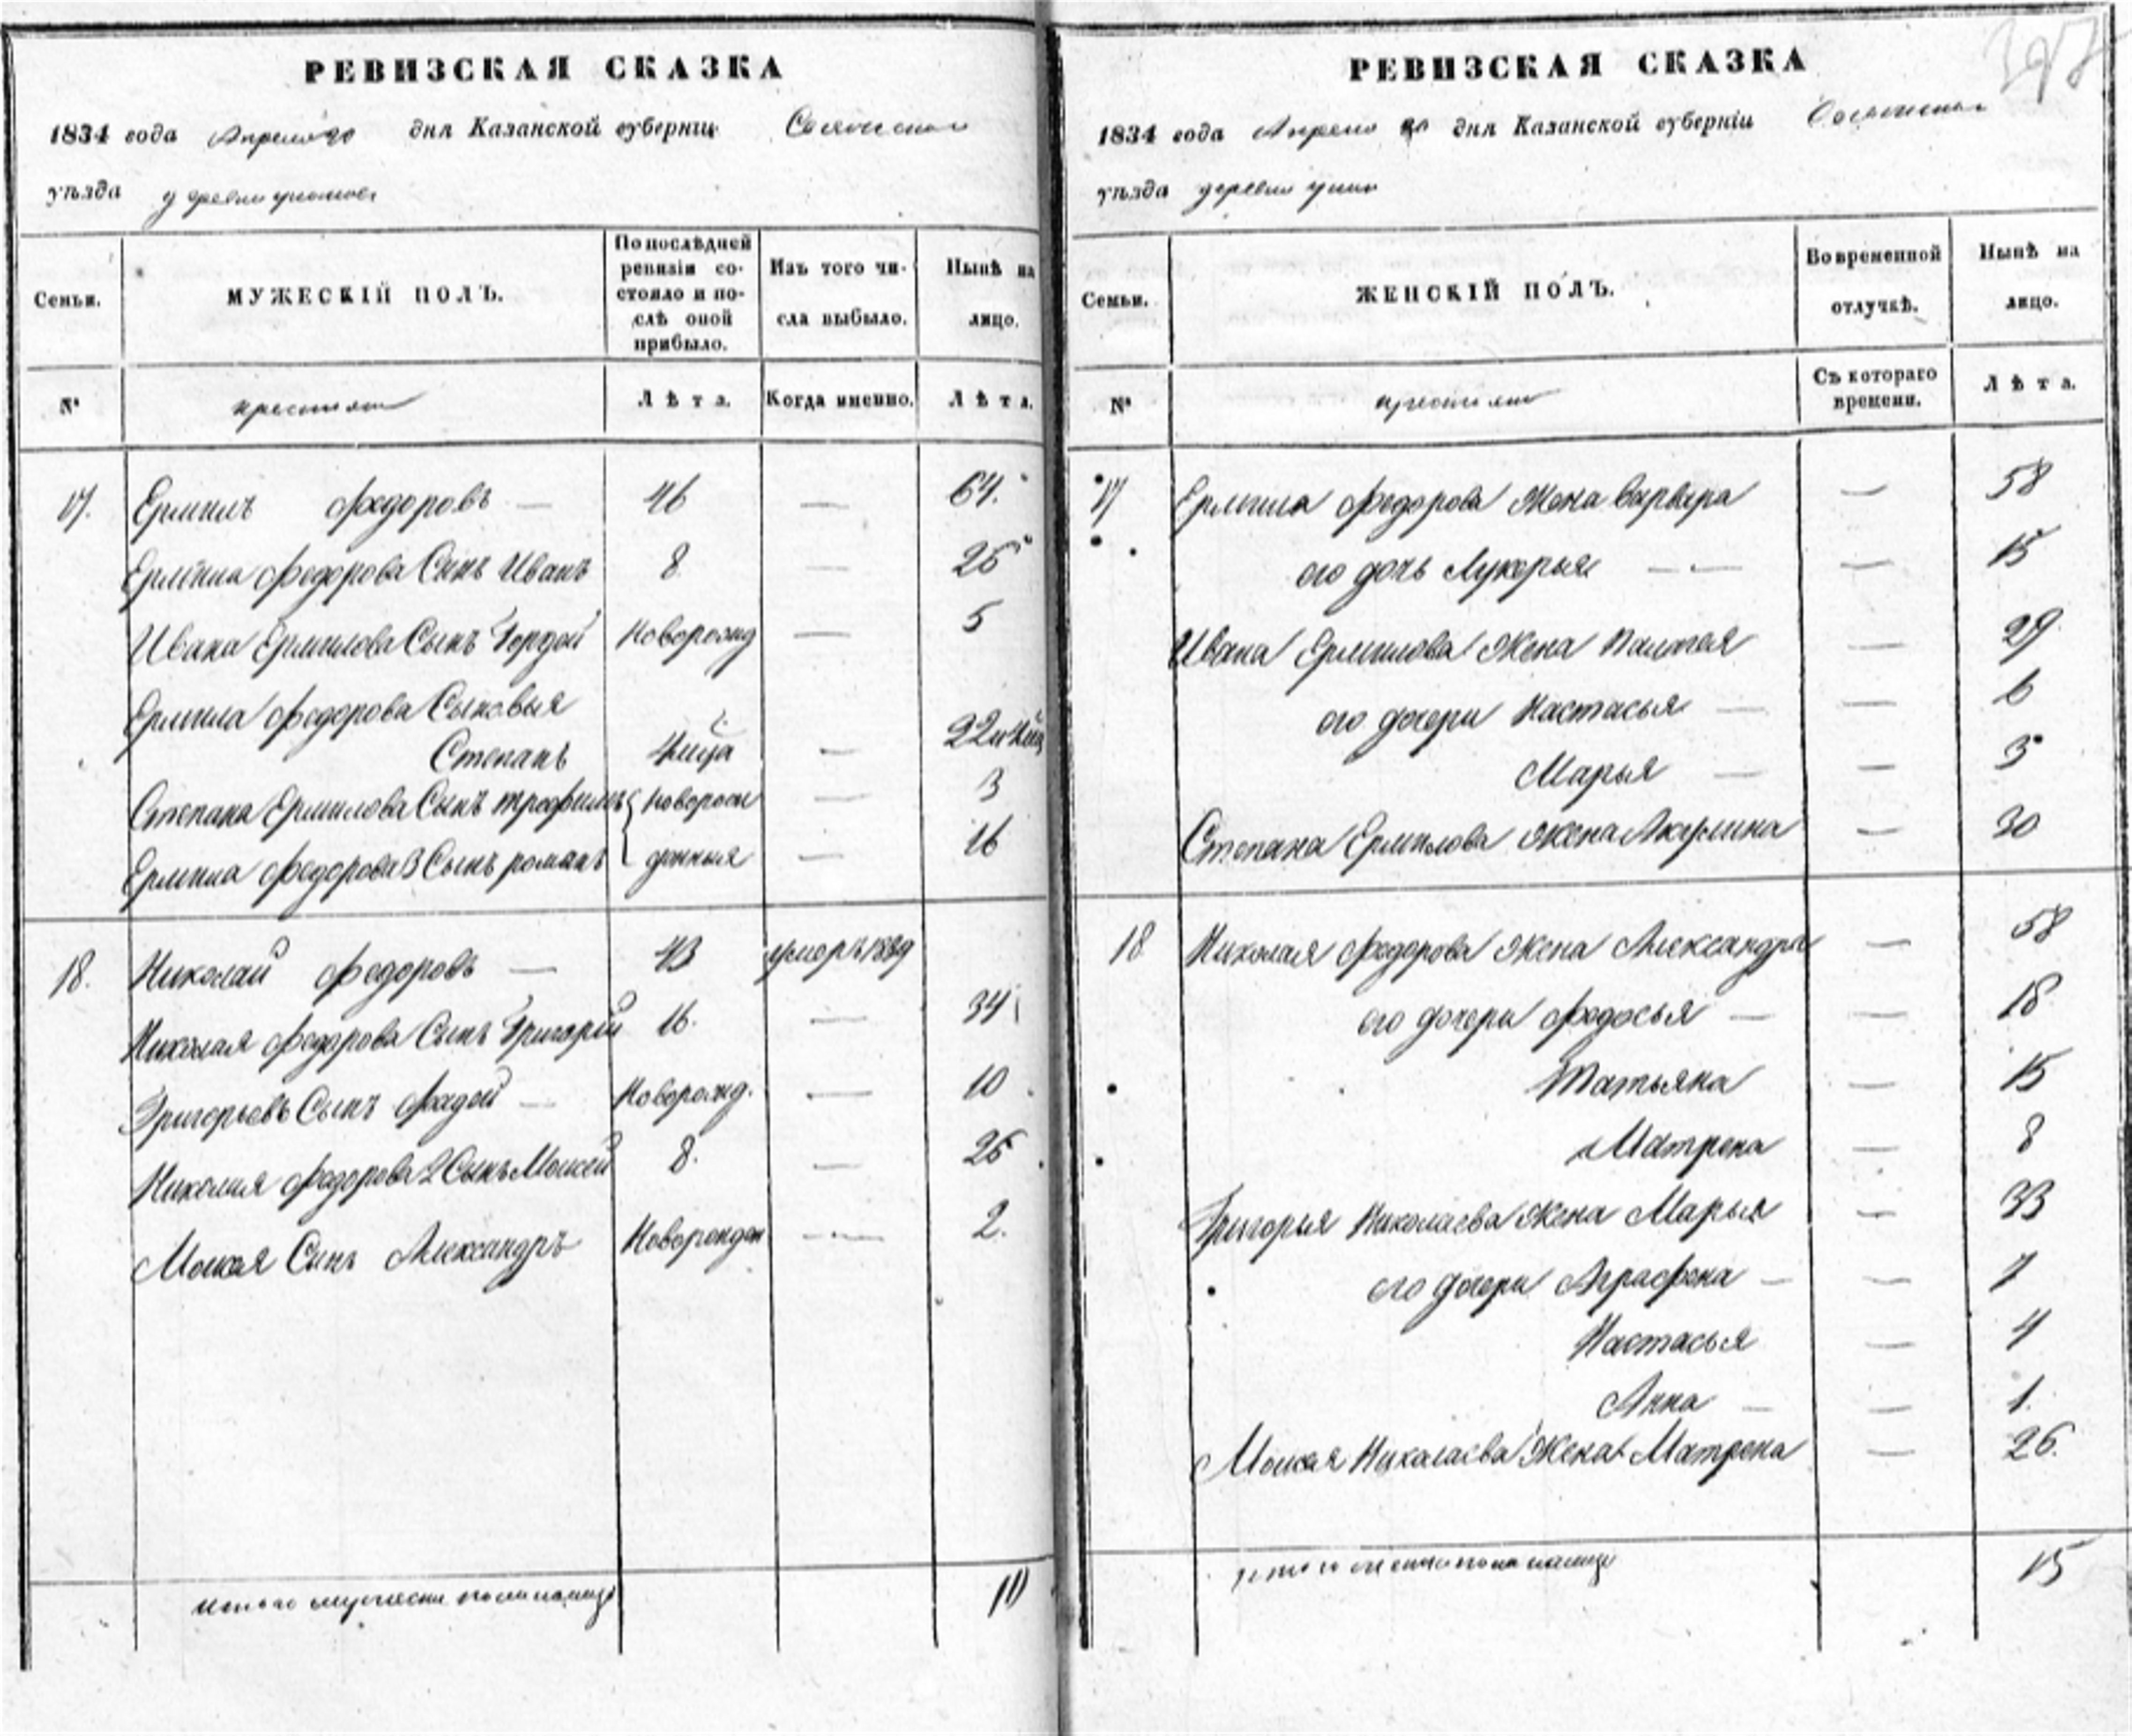 РЕВИЗСКАЯ СКАЗКА
1834 года Апреля 30 дня Казанской губернiи
уѣзда деревни
Семьи.
МУЖЕСКIЙ ПОЛЪ.
По послѣдней ревизiи состояло и послѣ оной прибыло.
Изъ того числа выбыло.
Нынѣ на лицо.
№
крестьяне
Лѣта.
Когда именно.
Лѣта.
17. Ермилъ Федоровъ — 46 — 64.
Ермила Федорова Сынъ Иванъ 8 — 26
Ивана Ермилова Сынъ Гордей Новорожд — 5
Ермила Федорова Сыновья
Степанъ 4 — 22
Степана Ермилова Сынъ трофимъ новорож — 3
Ермила Федорова 3 Сынъ романъ денныя — 16
18. Николай Федоровъ — 43 умеръ
Николая Федорова Сынъ Григорiй 16. — 34
Григорьевъ Сынъ Фадей — Новорожд. — 10
Николая Федорова 2 Сынъ Моисей 8. — 26
Моисея Сынъ Александръ Новорожден — 2.
итого мужеска пола на лицо 10
РЕВИЗСКАЯ СКАЗКА
1834 года Апреля 30 дня Казанской губернiи
уѣзда деревни
Семьи.
ЖЕНСКIЙ ПОЛЪ.
Во временной отлучкѣ.
Нынѣ на лицо.
№
крестьяне
Съ котораго времени.
Лѣта.
17 Ермила Федорова Жена Варвара — 58
его дочь Лукерья — — — 15
Ивана Ермилова Жена — 29
его дочери Настасья — — 6
Марья — — 3
Степана Ермилова Жена Акулина — 30
18 Николая Федорова Жена Александра — 58
его дочери Федосья — — 18
Татьяна — 15
Матрена — 8
Григорья Николаева Жена Марья — 33
его дочери Аграфена — — 7
Настасья — 4
Анна — — 1.
Моисея Николаева Жена Матрена — 26.
итого женска пола на лицо 15